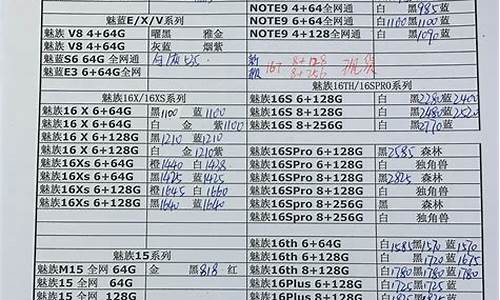 魅蓝E/X/V系列
魅族 V8 4+64G 曜黑 雅金
魅族 V8 4+64G 灰蓝 烟紫
魅蓝S6 64G 全网通
魅蓝E3 6+64G 全网通
魅族16X/16XS系列
魅族16 X 6+64G 黑1100 蓝1100
魅族16 X 6+64G 白 金 紫1100
魅族16 X 6+128G 黑1210 蓝1210
魅族16 X 6+128G 白 金 1210紫
魅族16Xs 6+64G 橙1440 白1428
魅族16Xs 6+64G 黑1425 蓝1425
魅族16Xs 6+128G 橙1645 白1660
魅族16Xs 6+128G 黑1640 蓝1640
魅族15系列
魅族M15 全网 64G 金 黑818 红
魅族15 全网 64G
魅族15 全网 128G
NOTE9 4+64全网通 白 黑985蓝
NOTE9 6+64全网通 白1100黑1100蓝
NOTE9 4+128全网通 白 黑1090蓝
16T 8+128
8+256
现货
魅族16TH/16SPRO系列
魅族16S 6+128G 白 黑2280蓝2400
魅族16S 8+128G 白 黑2480蓝2520
魅族16S 8+256G 白 黑2770蓝
魅族16SPro 6+128G 黑2585 森林
魅族16SPro 6+128G 白 独角兽
魅族16SPro 8+128G 黑2825 森林
魅族16SPro 8+128G 白 独角兽
魅族16SPro 8+256G 黑 森林
魅族16SPro 8+256G 白 独角兽
魅族16th 6+64G 白1585黑1570蓝1570
魅族16th 6+128G 白 黑1720蓝1675
魅族16th 8+128G 白1780黑1780蓝1780
魅族16Plus 6+128G 白1725黑1725蓝
魅族16Plus 8+128G